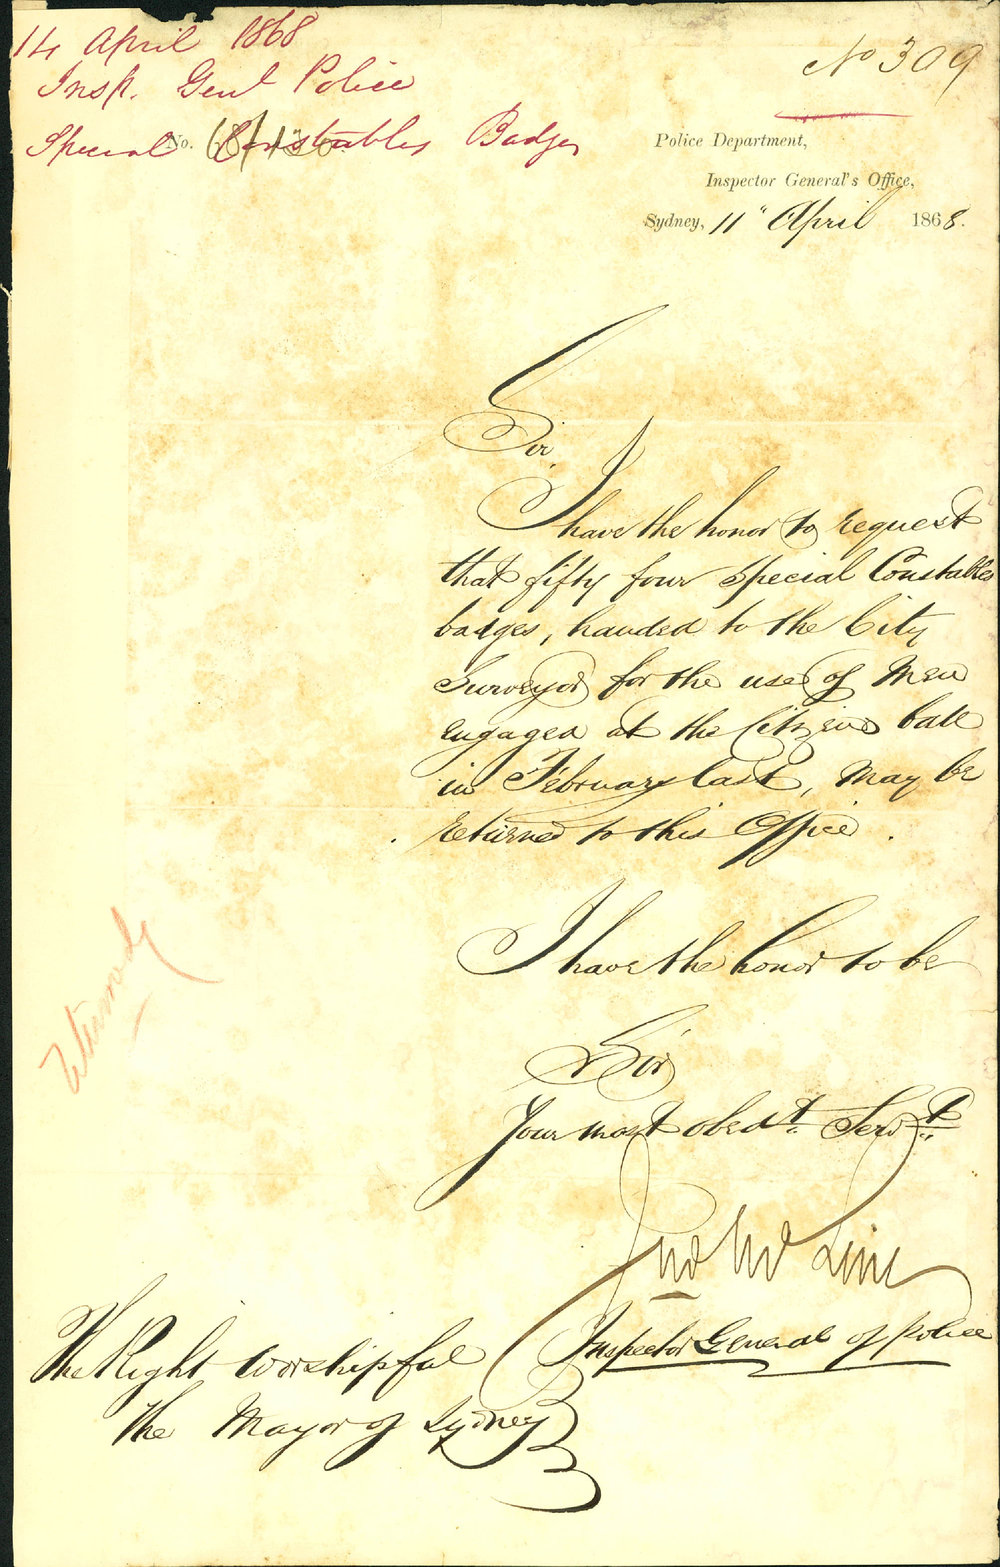 14 April 1868
Insp. Genl Police
Special Constables Badges
No. 68/
No 309
Police Department,
Inspector General's Office,
Sydney, 11" April 1868.
Sir,
I have the honor to request
that fifty four Special Constables
badges, handed to the City
Surveyor for the use of Men
engaged at the Citizens ball
in February last, may be
returned to this Office.
I have the honor to be
Sir
Your most obedt. Servt.
Inspector General of Police
The Right Worshipful
The Mayor of Sydney